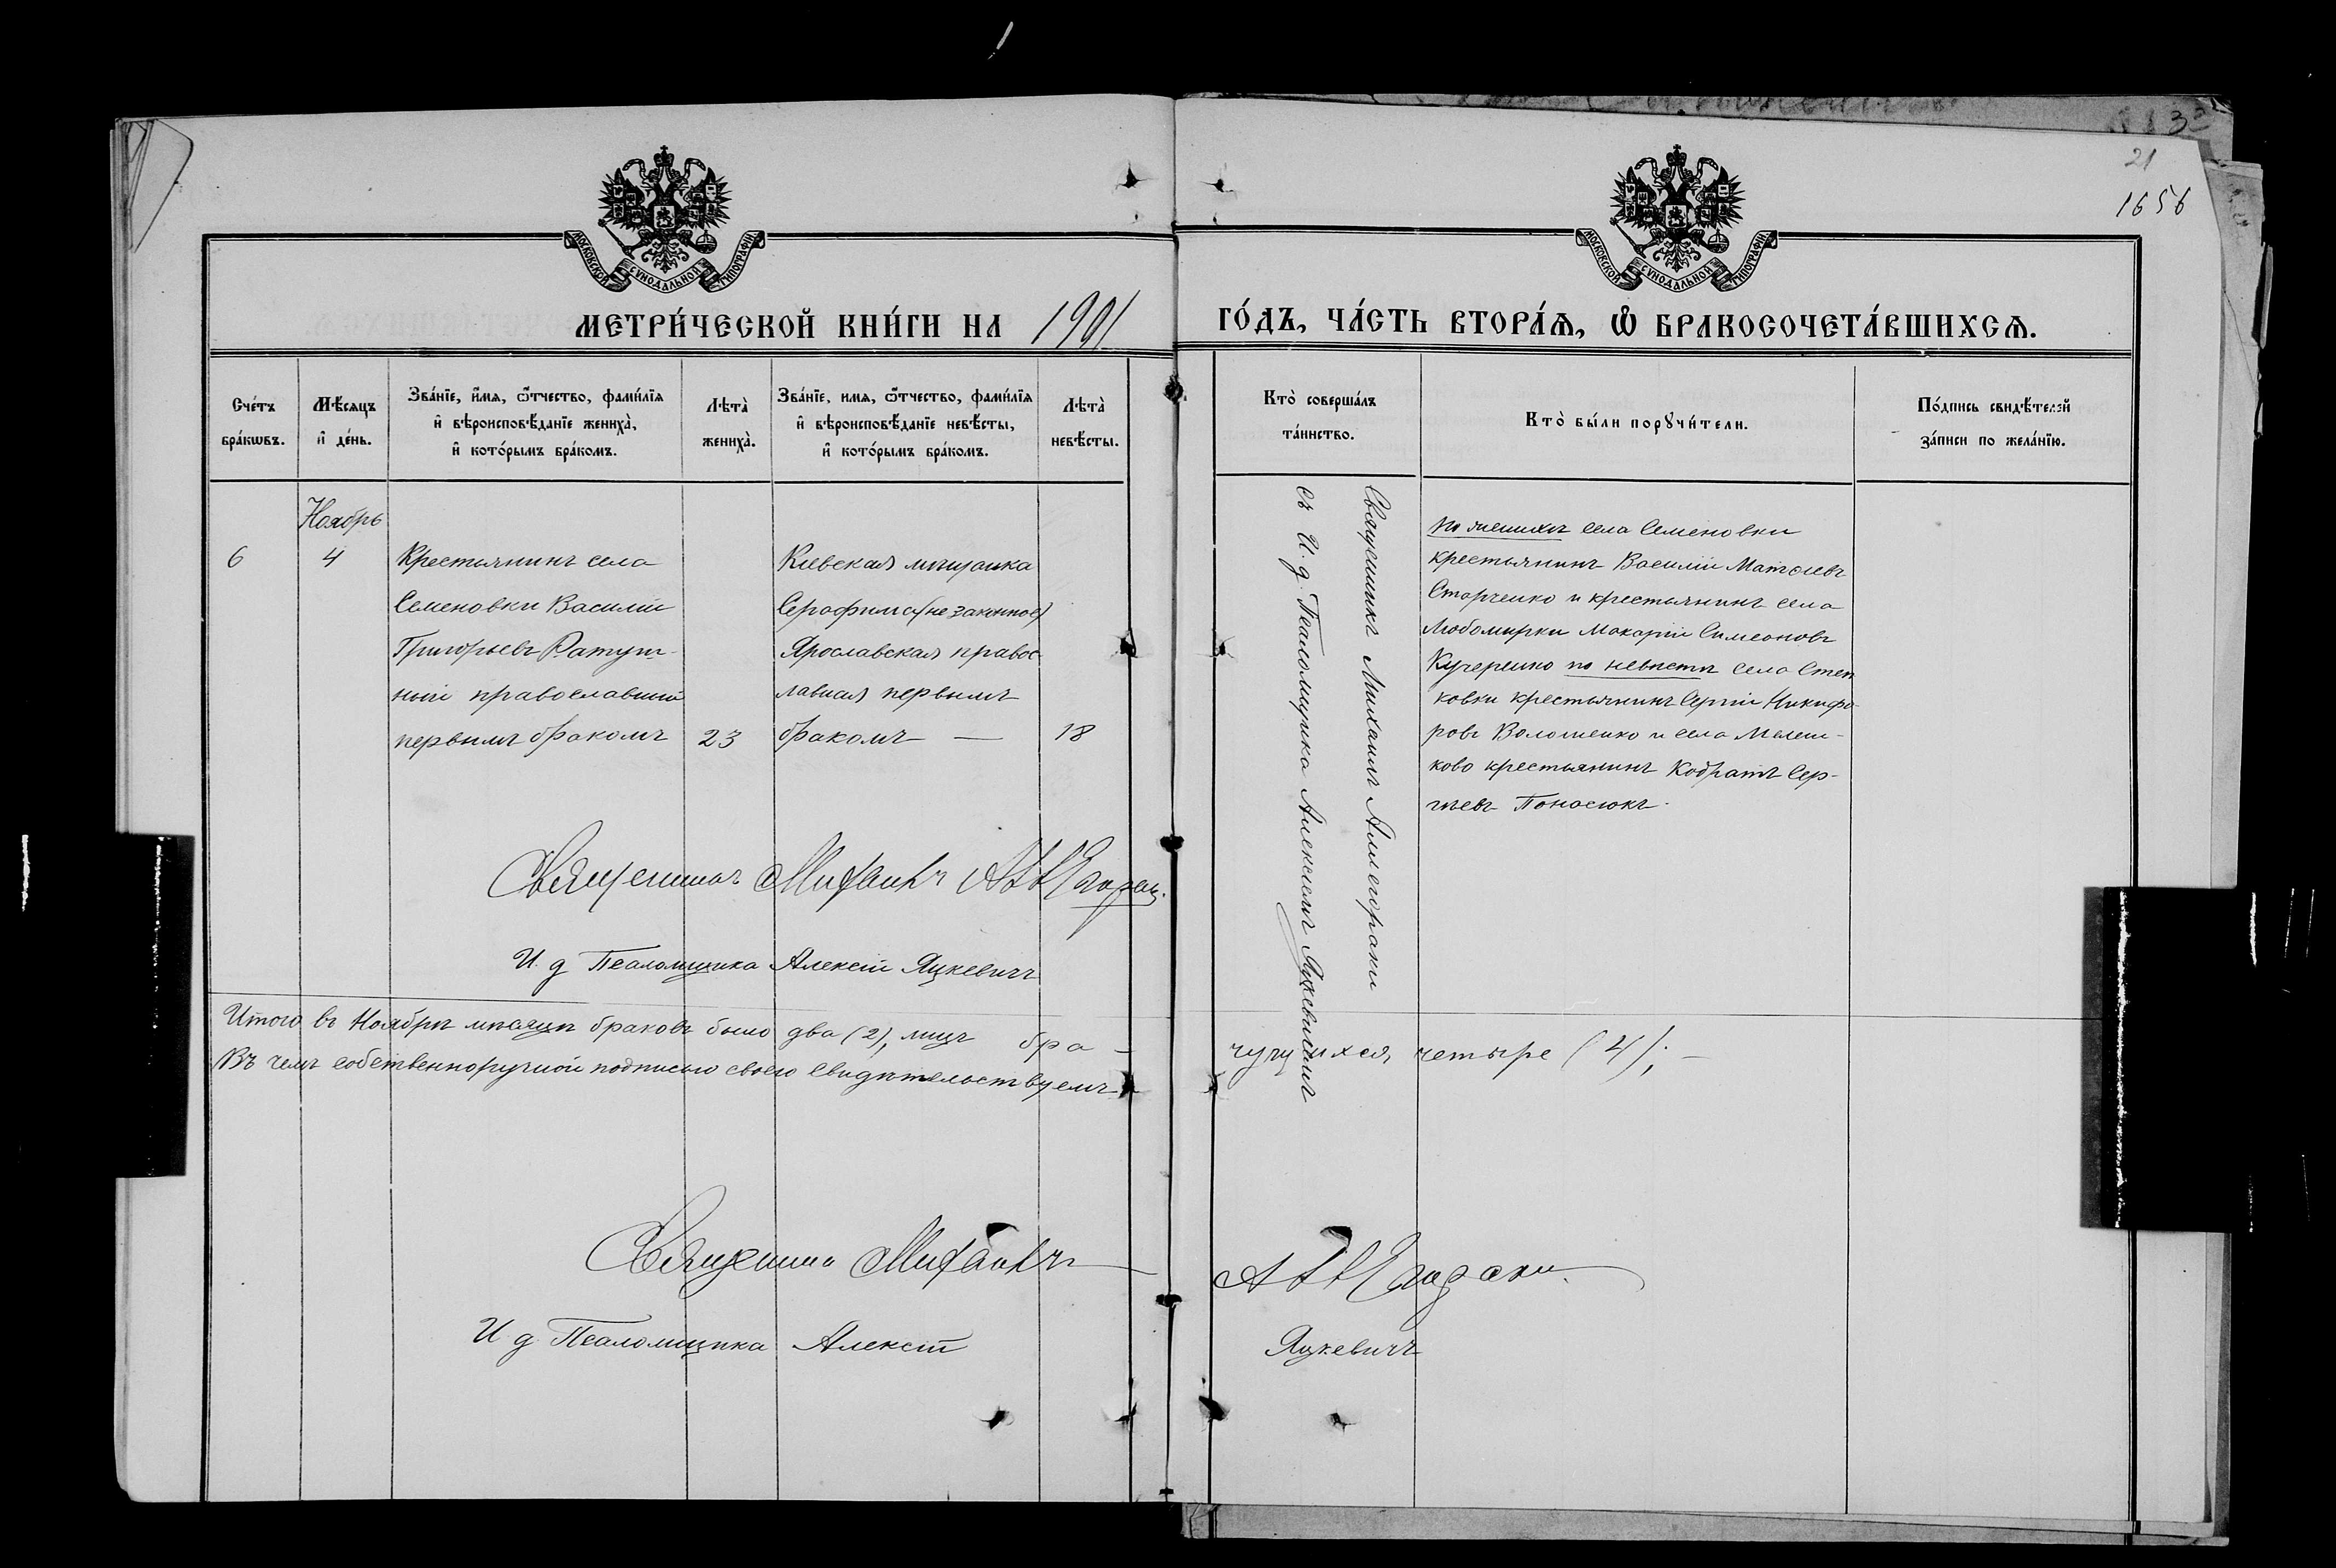 32
21
1656
МОСКОВСКОЙ СУНОДАЛЬНОЙ ТИПОГРАФІИ
МОСКОВСКОЙ СУНОДАЛЬНОЙ ТИПОГРАФІИ
МЕТРИ́ЧЕСКОЙ КНИ́ГИ НА 1901
ГО́ДЪ, ЧА́СТЬ ВТОРА́Ѧ, Ѽ БРАКОСОЧЕТА́ВШИХСѦ.
Сче́тъ
бра́кѡвъ.
Мѣ́сѧцъ
и҆ де́нь.
Зва́нїе, и҆́мѧ, ѻ҆́тчество, фами́лїѧ
и҆ вѣроисповѣ́данїе жениха̀,
и҆ кото́рымъ бра́комъ.
Лѣта̀
жениха̀.
Зва́нїе, имѧ, ѻ҆́тчество, фами́лїѧ
и҆ вѣроисповѣ́данїе невѣ́сты,
и҆ кото́рымъ бра́комъ.
Лѣта̀
невѣ́сты.
Кто̀ соверша́лъ
та́инство.
Кто̀ бы́ли порꙋчи́тели.
По́дпись свидѣ́телей
за́писи по жела́нїю.
Ноябрь
6
4
Крестьянинъ села
Семеновки Василій
Григорьевъ Ратуш-
ный православный
первымъ бракомъ
23
Кіевская мѣщанка
Серафима (незаконное)
Ярославская правос-
лавная первымъ
бракомъ —
18
Священникъ Михаилъ
съ И. д. Псаломщика Алексіемъ Яцкевичемъ
по женихѣ села Семеновки
крестьянинъ Василій Матѳіевъ
Старченко и крестьянинъ села
Любомирки Макарій Симеоновъ
Кучеренко по невѣстѣ села Степ
ковки крестьянинъ Сергій Никифо-
ровъ Волошенко и села Мелеш-
ково крестьянинъ Кодратъ Сер-
гѣевъ Понасюкъ.
Священникъ Михаилъ
И. д Псаломщика Алексій Яцкевичъ
Итого въ Ноябрѣ мѣсяцѣ браковъ было два (2), лицъ бра-
чущихся, четыре (4); —
Въ чемъ собственноручной подписью своею свидѣтельствуемъ
Священникъ Михаилъ
И. д Псаломщика Алексій
Яцкевичъ